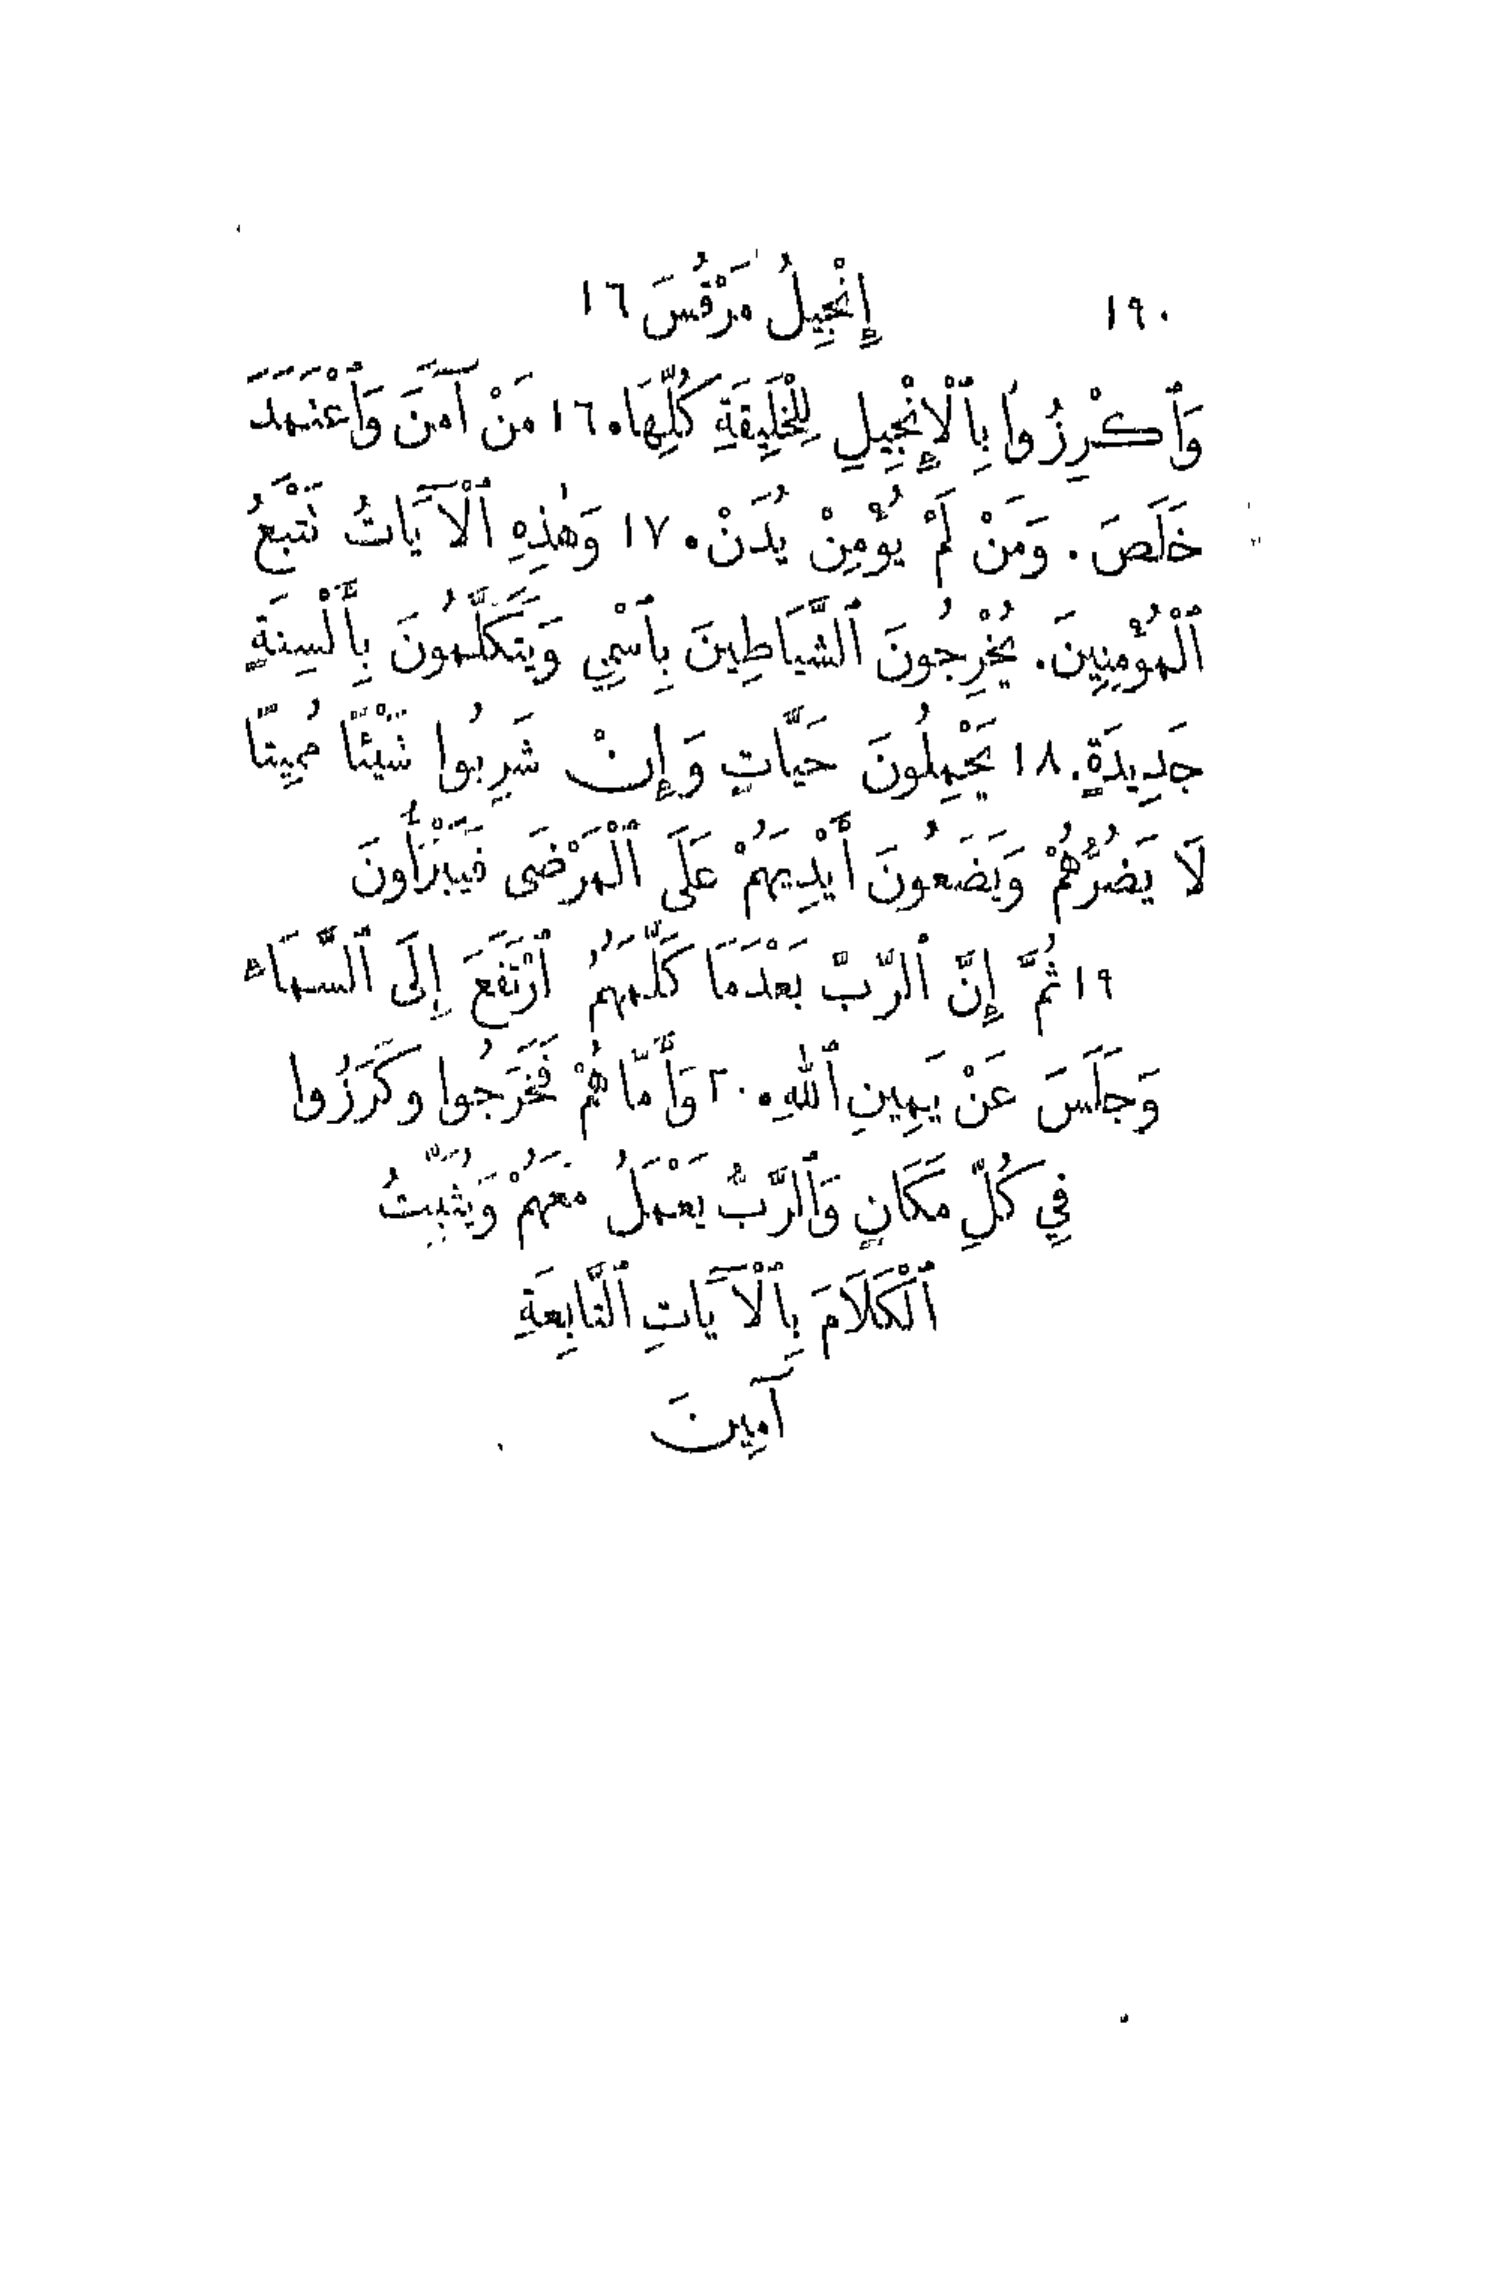 ١٩٠ إِنْجِيلُ مَرْقُسَ ١٦
وَٱكْرِزُوا بِٱلْإِنْجِيلِ لِلْخَلِيقَةِ كُلِّهَا. ١٦ مَنْ آمَنَ وَٱعْتَمَدَ
خَلَصَ. وَمَنْ لَمْ يُؤْمِنْ يُدَنْ. ١٧ وَهٰذِهِ ٱلْآيَاتُ تَتْبَعُ
ٱلْمُؤْمِنِينَ. يُخْرِجُونَ ٱلشَّيَاطِينَ بِٱسْمِي وَيَتَكَلَّمُونَ بِأَلْسِنَةٍ
جَدِيدَةٍ. ١٨ يَحْمِلُونَ حَيَّاتٍ وَإِنْ شَرِبُوا شَيْئًا مُمِيتًا
لَا يَضُرُّهُمْ وَيَضَعُونَ أَيْدِيَهُمْ عَلَى ٱلْمَرْضَى فَيَبْرَأُونَ
١٩ ثُمَّ إِنَّ ٱلرَّبَّ بَعْدَمَا كَلَّمَهُمُ ٱرْتَفَعَ إِلَى ٱلسَّمَاءِ
وَجَلَسَ عَنْ يَمِينِ ٱللهِ. ٢٠ وَأَمَّا هُمْ فَخَرَجُوا وَكَرَزُوا
فِي كُلِّ مَكَانٍ وَٱلرَّبُّ يَعْمَلُ مَعَهُمْ وَيُثَبِّتُ
ٱلْكَلَامَ بِٱلْآيَاتِ ٱلتَّابِعَةِ
آمِينَ